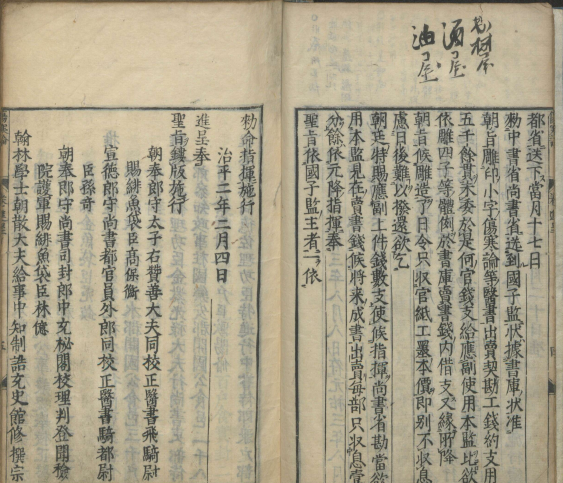 都省送下當月十七日
勑中書省尚書省送到國子監狀據書庫狀准
朝旨雕印小字傷寒論等醫書出賣契勘工錢約支用
五千餘貫未委於是何官錢支給應副使用本監比欲
依雕四子等體例於書庫賣書錢内借支又縁所降
朝旨候雕造了日令只収官紙工墨本價即别不収息
慮日後難以撥還欲乞
朝廷特賜應副上件錢數支使候指揮尚書省勘當欲
用本監見在賣書錢候將來成書出賣每部只収息壹
分餘依元降指揮奉
聖旨依國子監主者一依
勑命指揮施行
治平二年二月四日
進呈奉
聖旨鏤版施行
朝奉郎守太子右賛善大夫同校正醫書飛騎尉
賜緋魚袋臣髙保衡
宣德郎守尚書都官員外郎同校正醫書騎都尉
臣孫奇
朝奉郎守尚書司封郎中充秘閣校理判登聞檢
院護軍賜緋魚袋臣林億
翰林學士朝散大夫給事中知制誥充史館修撰宗
酒屋
油屋